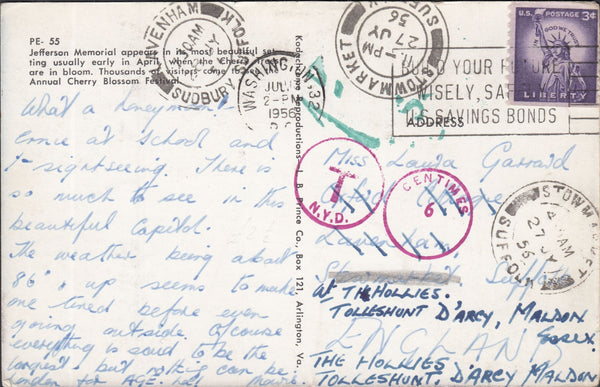 PE- 55
Jefferson Memorial appears in its most beautiful set-
ting usually early in April when the Cherry Trees
are in bloom. Thousands of visitors come for the
Annual Cherry Blossom Festival.
What a honeymoon!
Ernie at School and
I sightseeing. There is
so much to see in this
beautiful Capitol.
The weather being about
86° up seems to make
one tired before even
going outside. Of course
everything is said to be the
largest but nothing can be
Kodachrome Reproductions — L. B. Prince Co., Box 121, Arlington, Va.
LAVENHAM
SUDBURY SUFFOLK
WASHINGTON
JUL
2-PM
1956
D.C.
STOWMARKET
PM
27 JY
56
SUFFOLK
BUILD YOUR FUTURE
WISELY, SAFELY
U.S. SAVINGS BONDS
U.S. POSTAGE 3¢
IN GOD WE TRUST
LIBERTY
ADDRESS
T
N.Y.D.
CENTIMES
6
STOWMARKET
AM
27 JY
56
SUFFOLK
Miss Laura Garrard
Lavenham,
Suffolk
AT THE HOLLIES.
TOLLESHUNT D'ARCY, MALDON
ESSEX.
ENGLAND
THE HOLLIES
TOLLESHUNT. D'ARCY MALDON